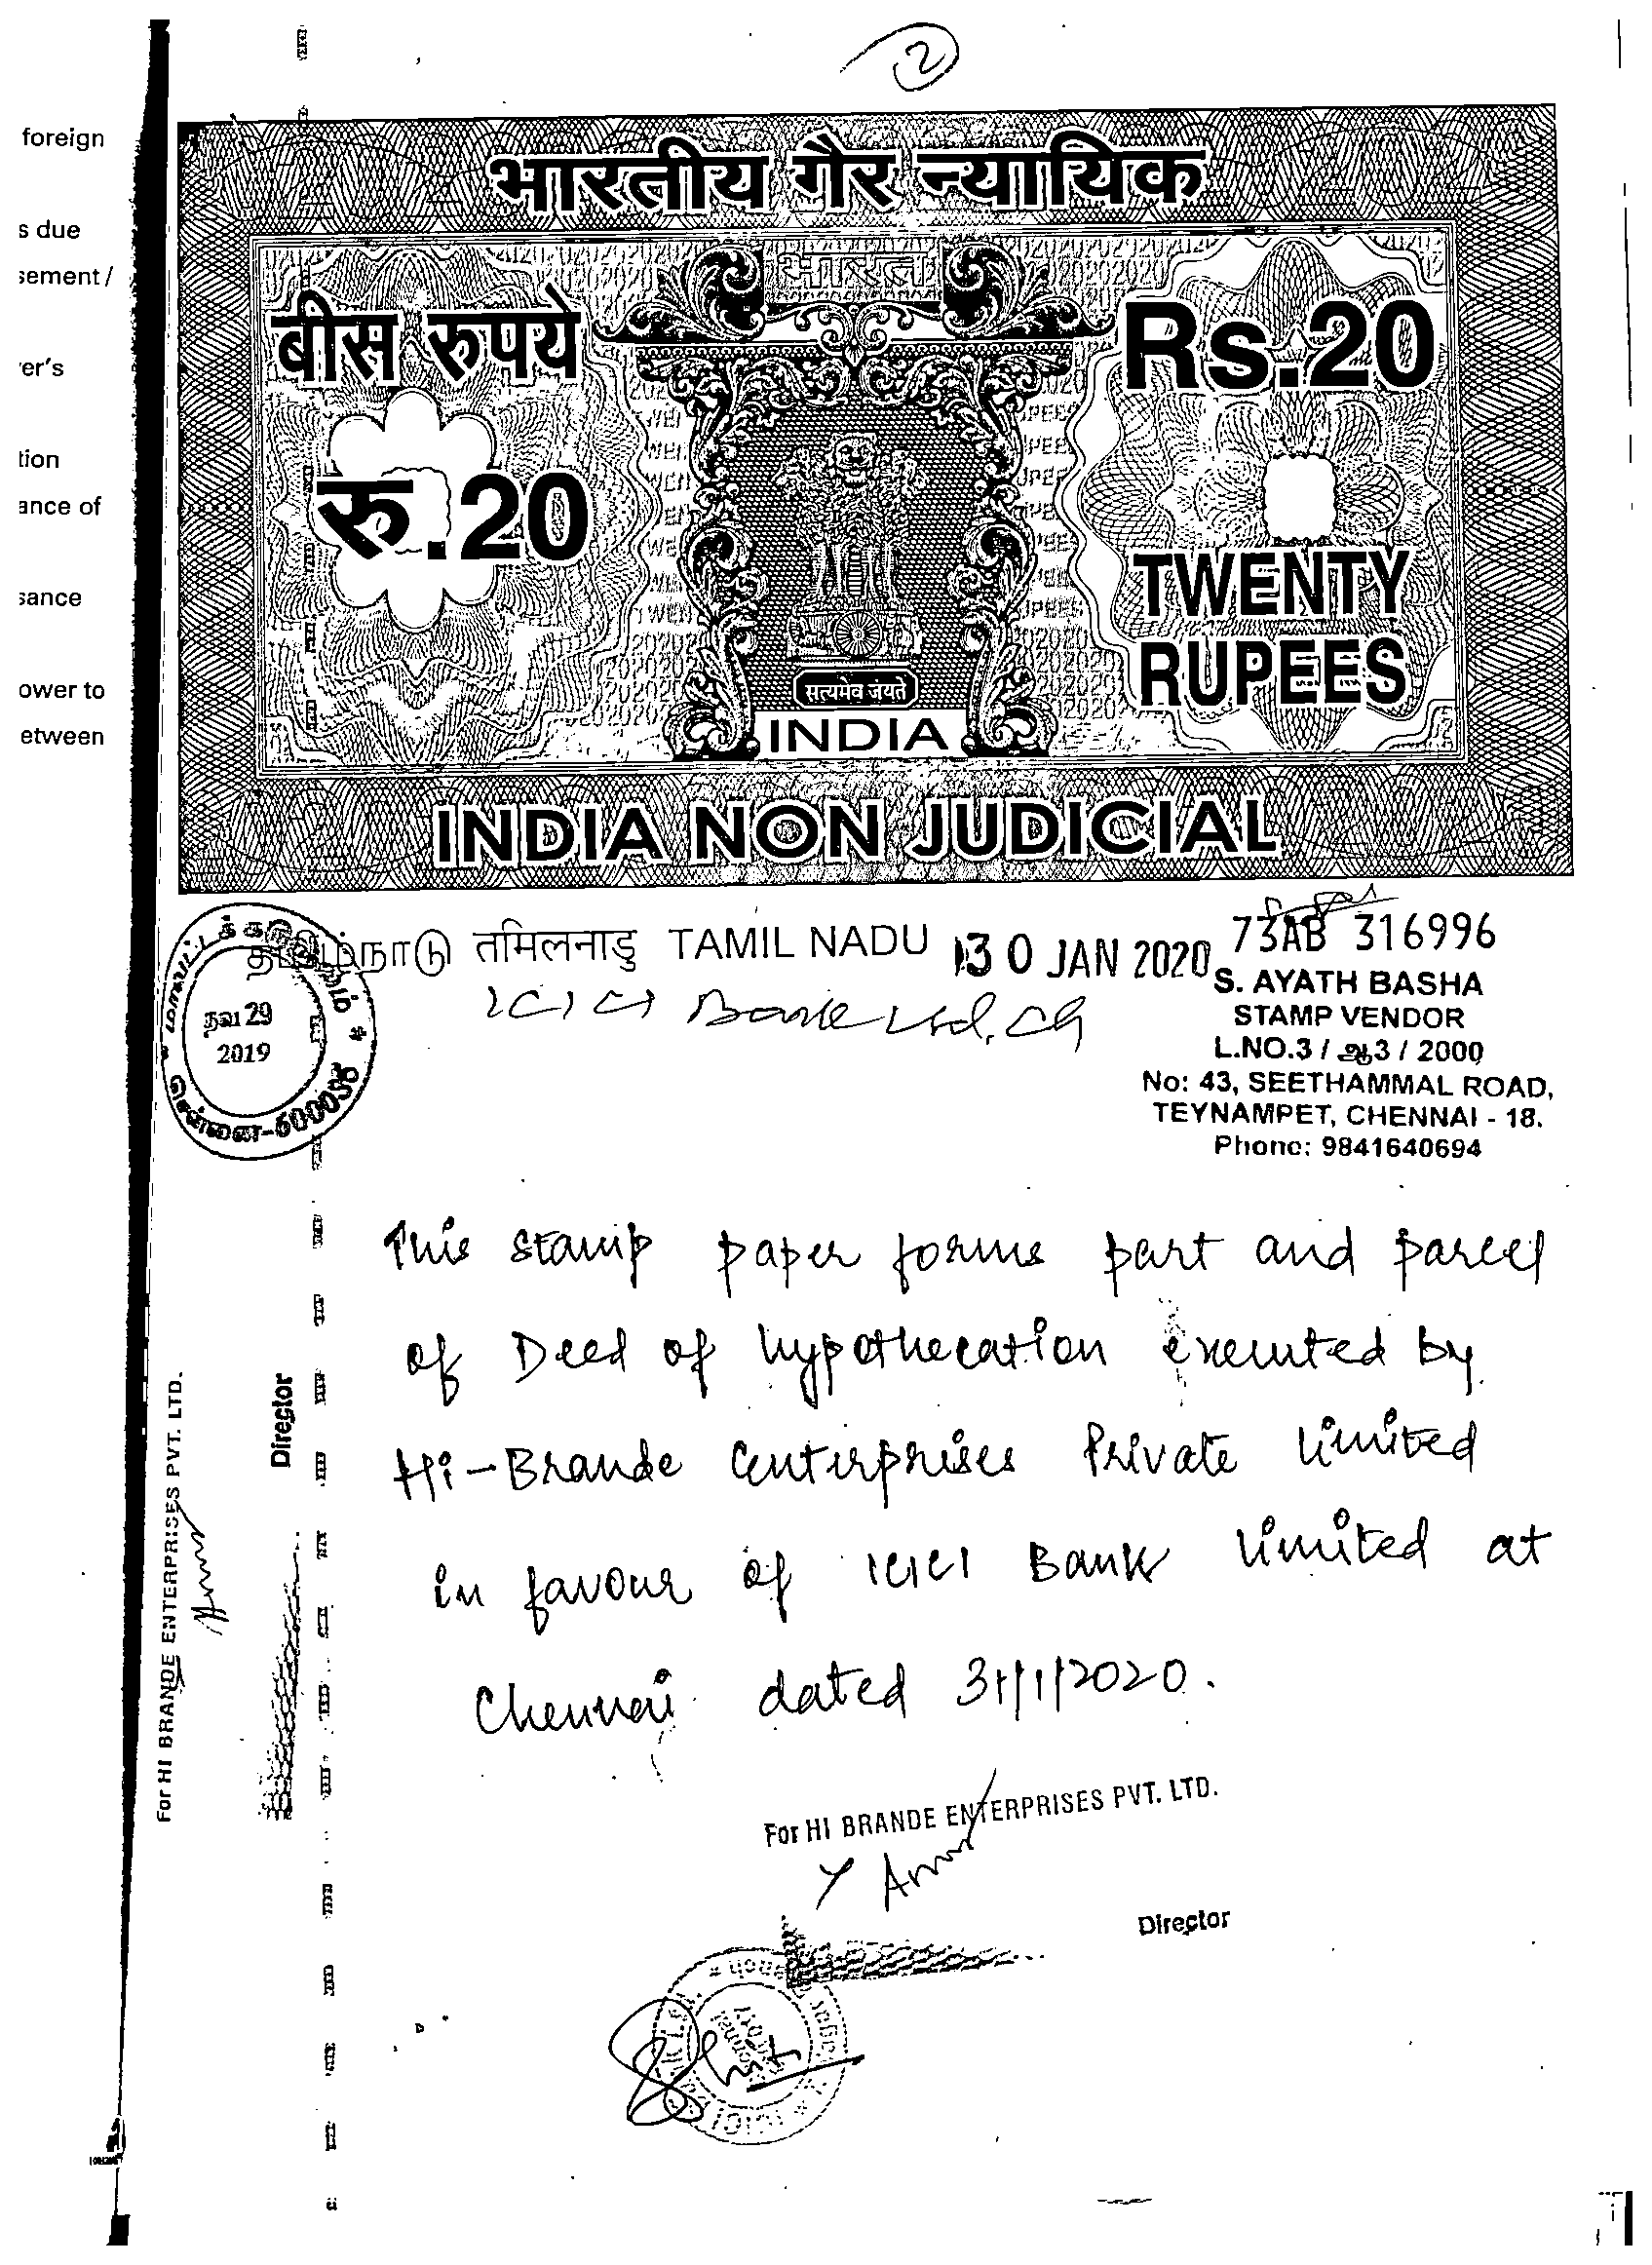 2
foreign
s due
sement /
er's
tion
ance of
sance
ower to
etween
भारतीय गैर न्यायिक
भारत
बीस रुपये
Rs.20
रु.20
TWENTY
RUPEES
सत्यमेव जयते
INDIA
INDIA NON JUDICIAL
தமிழ்நாடு तमिलनाडु TAMIL NADU
30 JAN 2020
73AB 316996
ICICI Bank Ltd,
S. AYATH BASHA
STAMP VENDOR
L.NO.3 / ஆ3 / 2000
No: 43, SEETHAMMAL ROAD,
TEYNAMPET, CHENNAI - 18.
Phone: 9841640694
நவ 29
2019
சென்னை-600038
This stamp paper forms part and parcel
of Deed of hypothecation executed by
Hi-Brande Enterprises Private limited
in favour of ICICI Bank limited at
Chennai dated 31/1/2020.
For HI BRANDE ENTERPRISES PVT. LTD.
Director
For HI BRANDE ENTERPRISES PVT. LTD.
Director